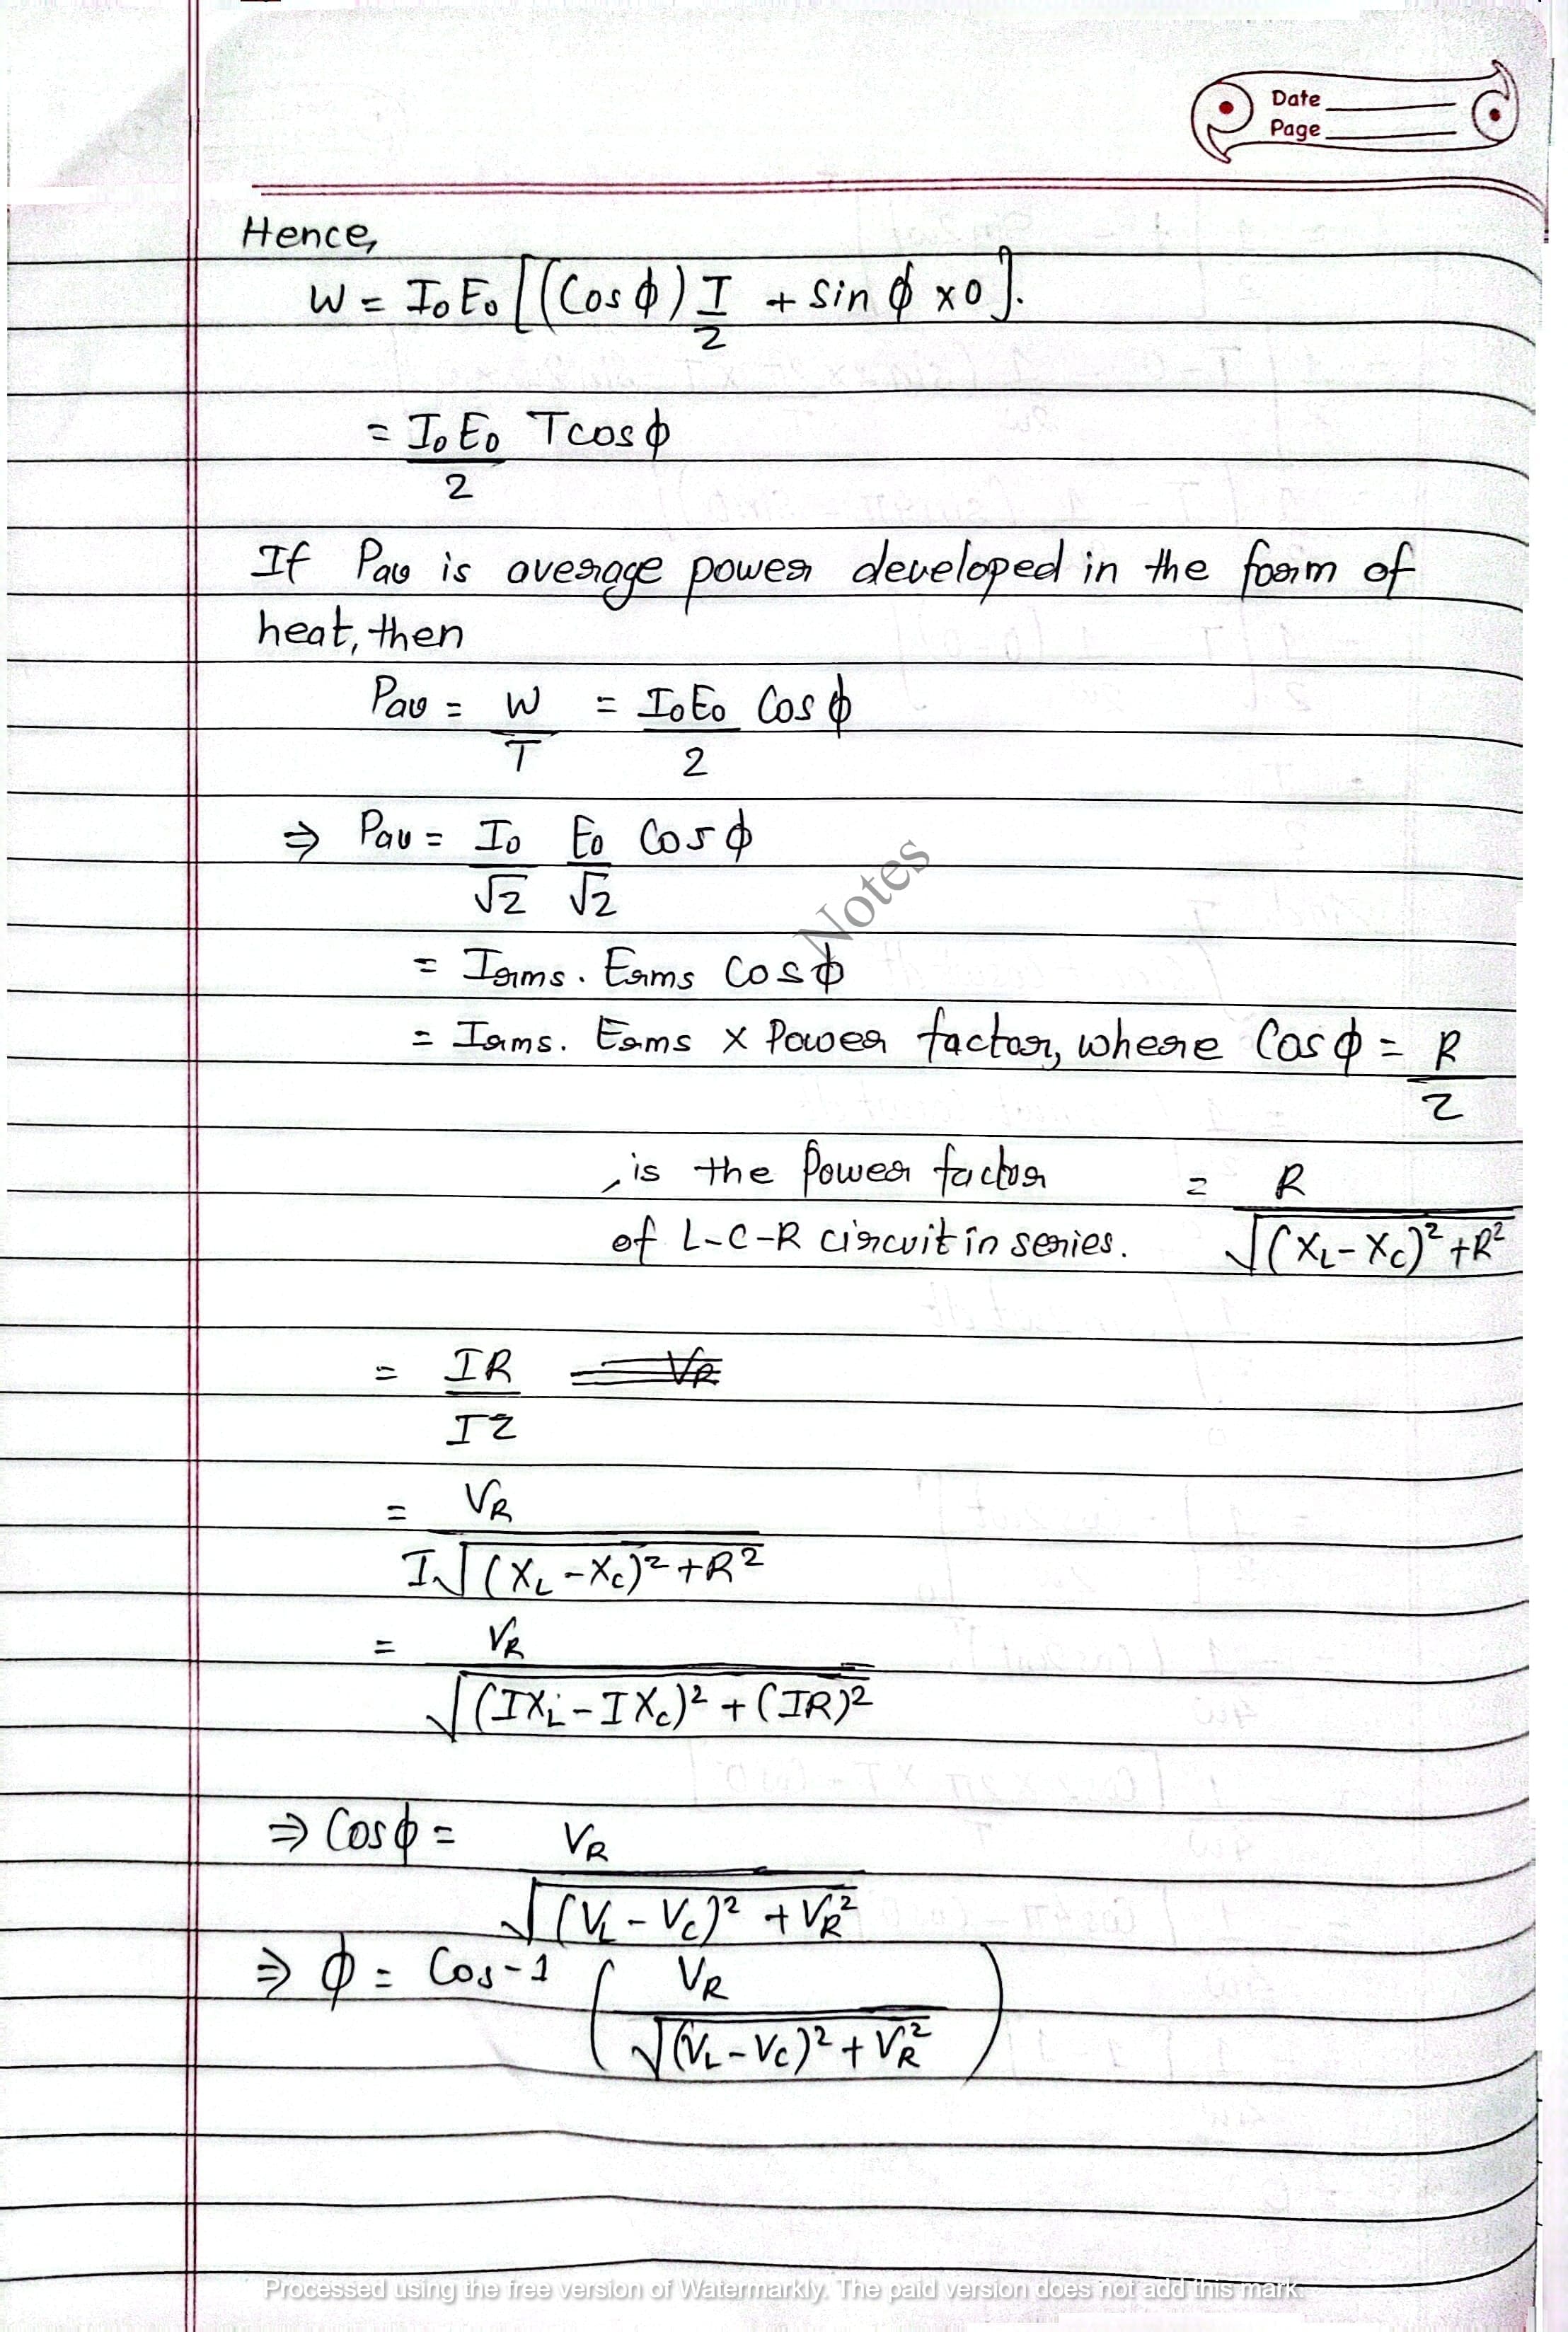 Date
Page
Hence,
W = I₀E₀ [(Cos ϕ) I/2 + sin ϕ × 0].
= I₀E₀/2 Tcosϕ
If Pav is average power developed in the form of
heat, then
Pav = W/T = I₀E₀/2 Cos ϕ
⇒ Pav = I₀/√2 E₀/√2 Cos ϕ
Notes
= Irms . Erms Cosϕ
= Irms. Erms × Power factor, where Cos ϕ = R/Z
, is the Power factor = R/√((X_L - X_C)² + R²)
of L-C-R circuit in series.
= IR/IZ = V_R
= V_R/I√((X_L - X_C)² + R²)
= V_R/√((IX_L - IX_C)² + (IR)²)
⇒ Cosϕ = V_R/√((V_L - V_C)² + V_R²)
⇒ ϕ = Cos-1 (V_R/√((V_L - V_C)² + V_R²))
Processed using the free version of Watermarkly. The paid version does not add this mark.